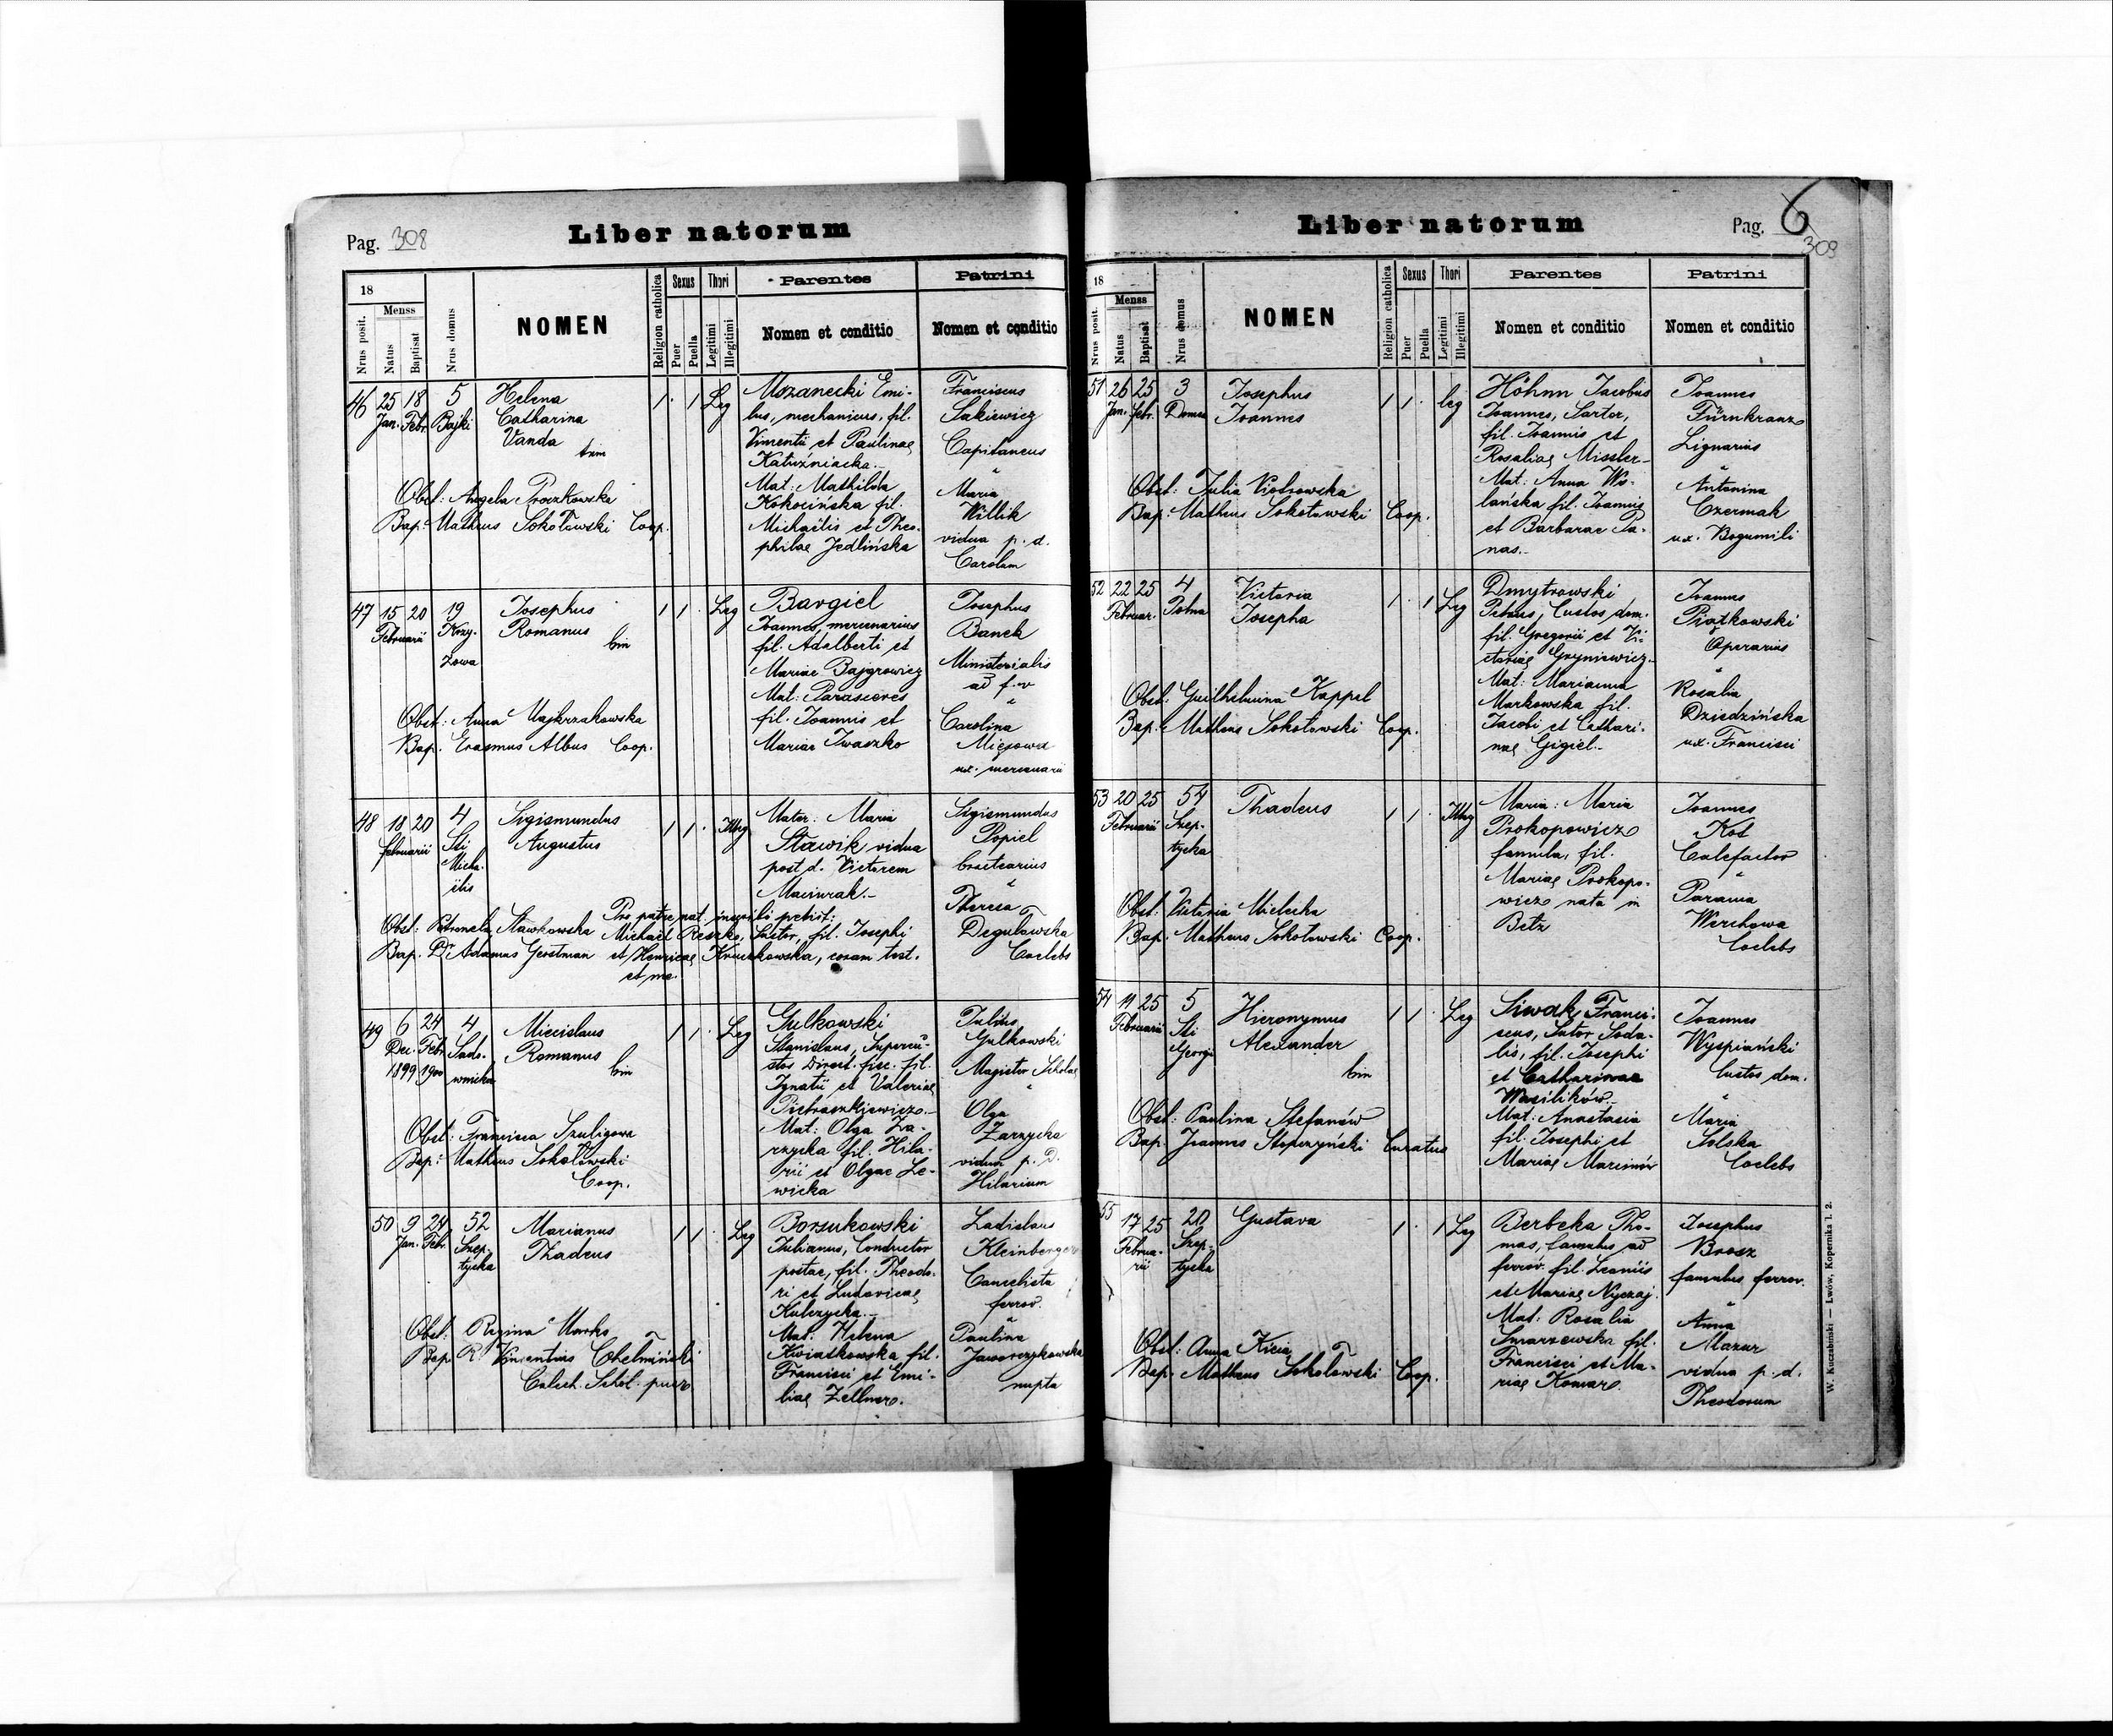 Pag. 308
Liber natorum
18
Nrus posit.
Menss
Natus
Baptisat
Nrus domus
NOMEN
Religion catholica
Sexus
Puer
Puella
Thori
Legitimi
Illegitimi
Parentes
Nomen et conditio
Patrini
Nomen et conditio
46 25 18 5 Helena
Jan. Febr. Bajki Catharina
Vanda
1 1 Leg
Obst: Angela Proczkowska
Bap: Matheus Sokołowski Coop.
Mozanecki Emi-
lius, mechanicus, fil.
Vincentii et Paulinae
Katuźniacka.-
Mat: Mathilda
Kokocińska fil.
Michaëlis et Theo-
philae Jedlińska
Franciscus
Sakiewicz
Capitaneus
"
Maria
Willik
vidua p. d.
Carolum
47 15 20 19 Josephus
Februarii Krzy- Romanus
żowa
bin
1 1 Leg
Obst: Anna Majkrzakowska
Bap. Erasmus Albus Coop.
Bargiel
Joannes, mercenarius
fil. Adalberti et
Mariae Bajgrowicz
Mat: Parasceves
fil. Joannis et
Mariae Iwaszko
Josephus
Banek
Ministerialis
"
Carolina
ux. mercenarii
48 18 20 4 Sigismundus
Februarii Sti Augustus
Micha-
ëlis
1 1 Illeg
Mater: Maria
Stawik vidua
post d. Victorem
Maciurak.-
Pro patre nat. inscribi petiit:
Obst: Petronela Sławkowska Michaël Reszko, Sartor, fil. Josephi
Bap. Dr Adamus Gerstman et Henricae Kruczkowska, coram test.
et me.
Sigismundus
Popiel
bractearius
"
Theresa
Degulowska
Coelebs
49 6 24 4 Miecislaus
Dec. Febr. Sado- Romanus
1899 1900 wnicka
bin
1 1 Leg
Obst: Francisca Szuligowa
Bap: Matheus Sokołowski
Coop.
Gulkowski
Stanislaus, Supercu-
stos Direct. fisc. fil.
Ignatii et Valeriae
Pietraszkiewicz.-
Mat: Olga Za-
rzycka fil. Hila-
rii et Olgae Le-
wicka
Julius
Gulkowski
Magister Scholae
"
Olga
Zarzycka
vidua p. d.
Hilarium
50 9 24 52 Marianus
Jan. Febr. Szep- Thadeus
tycka
1 1 Leg
Obst: Regina Marko
Bap. R. Vincentius Chełmiński
Catech. Schol. puer
Borsukowski
Julianus, Conductor
postae, fil. Theodo-
ri et Ludovicae
Kulczycka.-
Mat. Helena
Kwiatkowska fil.
Francisci et Emi-
liae Zellner.
Ladislaus
Kleinberger
Cancelista
ferrov.
"
Paulina
Jaworczykowska
nupta
Liber natorum
Pag. 6
309
18
Nrus posit.
Menss
Natus
Baptisat
Nrus domus
NOMEN
Religion catholica
Sexus
Puer
Puella
Thori
Legitimi
Illegitimi
Parentes
Nomen et conditio
Patrini
Nomen et conditio
51 26 25 3 Josephus
Jan. Febr. Domsa Joannes
1 1 leg
Obst: Julia Piotrowska
Bap: Matheus Sokołowski Coop.
Höhnn Jacobus
Joannes, Sartor,
fil. Joannis et
Rosaliae Missler-
Mat: Anna Wo-
lańska fil. Joannis
et Barbarae Pa-
nas.-
Joannes
Fürnkranz
Lignarius
"
Antonina
Czermak
ux. Bogumili
52 22 25 4 Victoria
Februar. Polna Josepha
1 1 Leg
Obst. Guilhelmina Kappel
Bap: Matheus Sokołowski Coop.
Dmytrowski
Petrus, Custos dom.
fil. Gregorii et Vi-
ctoriae Gryniewicz-
Mat: Marianna
Markowska fil.
Jacobi et Cathari-
nae Gigiel.-
Joannes
Piątkowski
Operarius
"
Rosalia
Dziedzińska
ux. Francisci
53 20 25 54 Thadeus
Februarii Szep-
tycka
1 1 Illeg
Obst: Victoria Mielecka
Bap: Matheus Sokołowski Coop.
Maria: Maria
Prokopowicz
famula, fil.
Mariae Prokopo-
wicz nata in
Bełz
Joannes
Kot
Calefactor
"
Parania
Werchowa
Coelebs
54 11 25 5 Hieronymus
Februarii Sti Alexander
Georgi
bin
1 1 Leg
Obst: Paulina Stefanów
Bap. Joannes Stopczyński Curatus
Siwak Franci-
scus, Sutor Soda-
lis, fil. Josephi
et Catharinae
Wasilików.-
Mat: Anastasia
fil. Josephi et
Mariae Marcinów
Joannes
Wyspiański
Custos dom.
"
Maria
Solska
Coelebs
55 17 25 20 Gustava
Februa- Szep-
rii tycka
1 1 Leg
Obst: Anna Kicia
Bap. Matheus Sokołowski Coop.
Berbeka Tho-
mas, famulus ad
ferrov. fil. Leonis
et Mariae Nyczaj.
Mat: Rosalia
Smarzewska fil.
Francisci et Ma-
riae Komar.
Josephus
Brosz
famulus ferrov.
"
Anna
Mazur
vidua p. d.
Theodorum
W. Kuczabiński — Lwów, Kopernika l. 2.